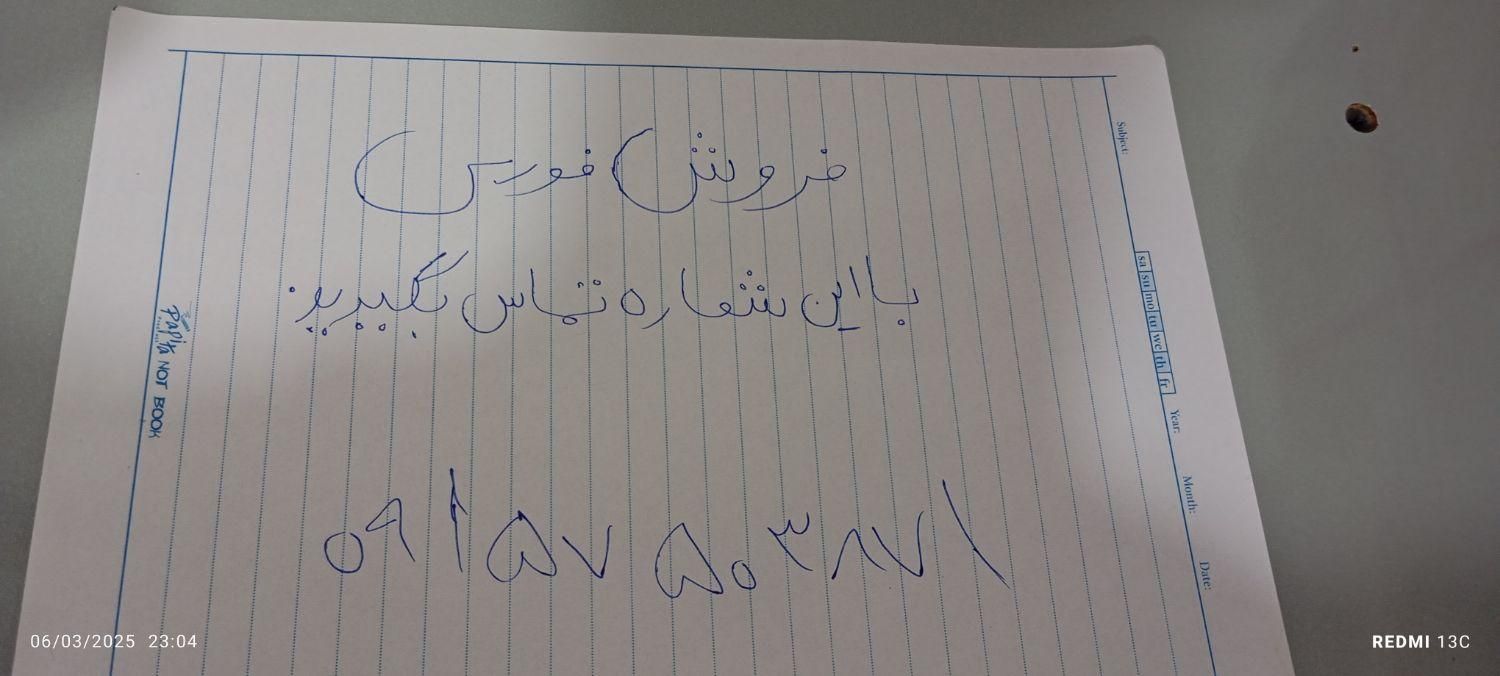 فروش فورس
با این شماره تماس بگیرید.
۰۹۱۵۷۵۰۳۸۷۱
Subject:
sa su mo tu we th fr
Year:
Month:
Date:
Papita NOT BOOK
06/03/2025 23:04
REDMI 13C